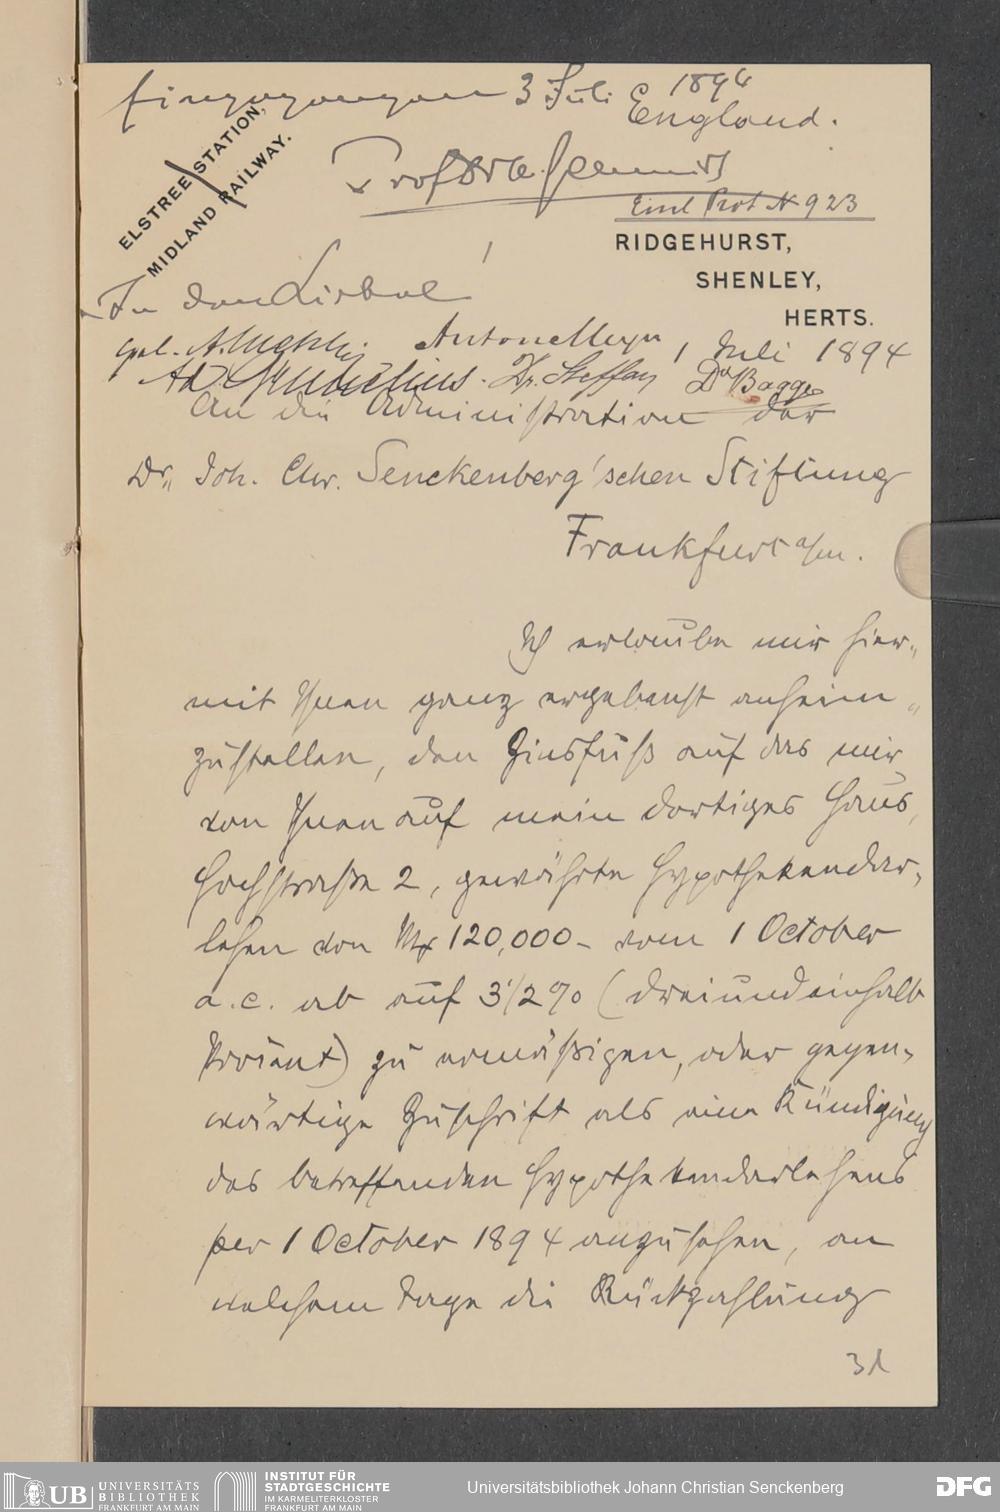 Eingegangen 3 Juli 1894
England.
ELSTREE STATION,
MIDLAND RAILWAY.
Prof
Einl Prot № 923
RIDGEHURST,
SHENLEY,
HERTS.
In den Zirkel!
gel.
Anton Meyer
1 Juli 1894
Ad. Dr. Steffan Dr Bagge
An die Administration der
Dr. Joh. Chr. Senckenberg'schen Stiftung
Frankfurt a/m.
Ich erlaube mir hier-
mit Ihnen ganz ergebenst anheim-
zustellen, den Zinsfuß auf das mir
von Ihnen auf mein dortiges Haus,
Hochstraße 2, gewährte Hypothekendar-
lehen von Mk 120,000 - vom 1 October
a. c. ab auf 3 1/2 % (dreiundeinhalb
Prozent) zu ermäßigen, oder gegen-
wärtige Zuschrift als eine Kündigung
des betreffenden Hypothekendarlehens
per 1 October 1894 anzusehen, an
welchem Tage die Rückzahlung
31
UB UNIVERSITÄTS
BIBLIOTHEK
FRANKFURT AM MAIN
INSTITUT FÜR
STADTGESCHICHTE
IM KARMELITERKLOSTER
FRANKFURT AM MAIN
Universitätsbibliothek Johann Christian Senckenberg
DFG